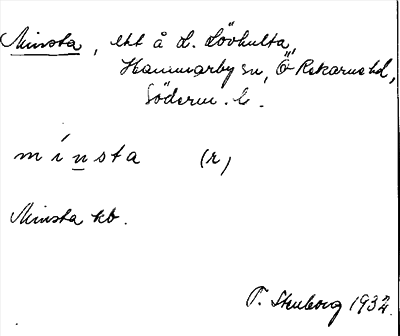 Minsta, ett å L. Lövhulta,
Hammarby sn, Ö Rekarne hd,
Söderm. l.
m í n s t a (r)
Minsta kb.
T. Stenborg 1932.